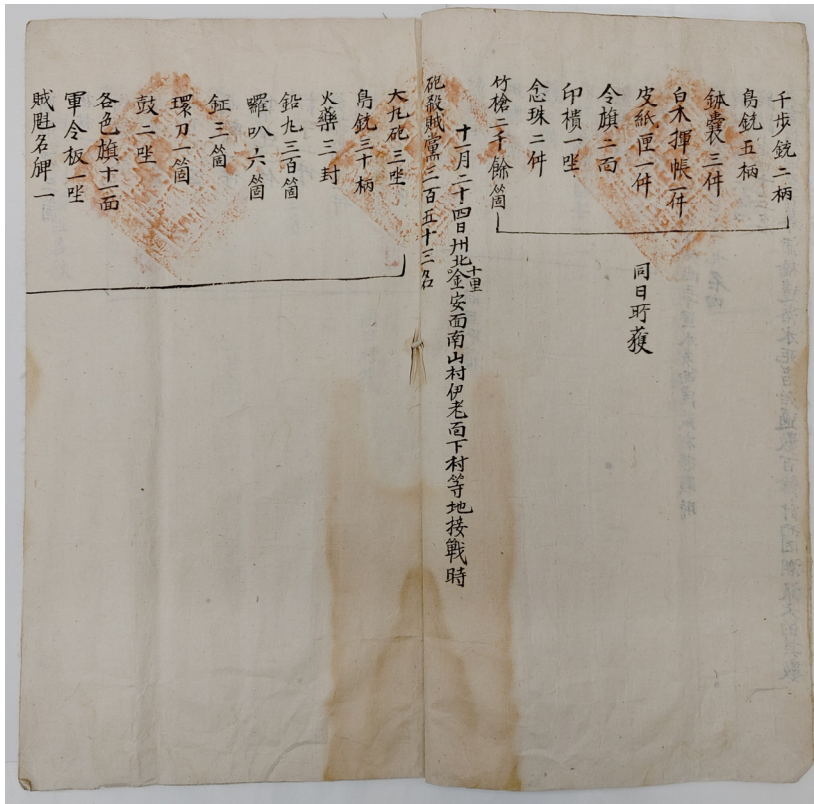 千步銃二柄
鳥銃五柄
鉢囊三件
白木揮帳一件
皮紙匣一件
令旗二面
印樻一坐
念珠二件
竹槍二千餘箇
同日所獲
十一月二十四日州北十里金安面南山村伊老面下村等地接戰時
砲殺賊黨三百五十三名
大丸砲三坐
鳥銃三十柄
火藥三封
鉛丸三百箇
囉叭六箇
鉦三箇
環刀一箇
鼓二坐
各色旗十一面
軍令板一坐
賊魁名牌一